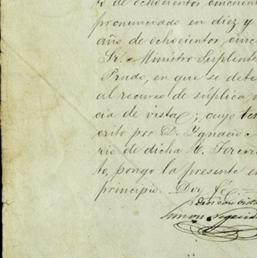 to de ochocientos cincuent
pronunciado en diez y
año de ochocientos, cinc
Sr. Ministro Suplent
Prado, en que se dete
al recurso de súplica,
cia de vista; cuyo
crito por D. Ygnacio
rio de dicha
to, pongo la presente e
principio. Doy fe